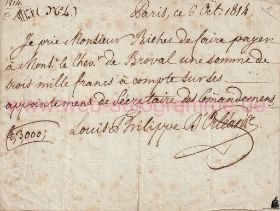 1814.
(N.º 4.)
Paris, ce 6 Oct. 1814
Je prie Monsieur Bichet de faire payer
à Mons.r le Chev.r de Broval une somme de
trois mille francs à compte sur ses
appointemens de Secrétaire des Comandemens
3,000
Louis Philippe D'Orléans